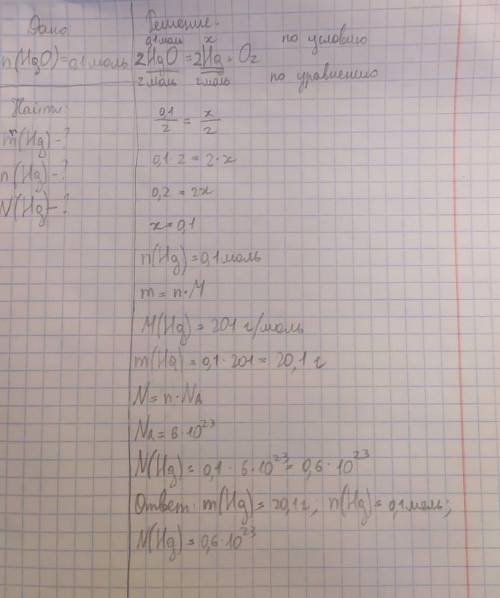 Дано:
n(HgO)=0,1 моль
Найти:
m(Hg)-?
n(Hg)-?
N(Hg)-?
Решение:
0,1 моль x по условию
2HgO = 2Hg + O2
2 моль 2 моль по уравнению
0,1/2 = x/2
0,1·2 = 2·x
0,2 = 2x
x = 0,1
n(Hg) = 0,1 моль
m = n·M
M(Hg) = 201 г/моль
m(Hg) = 0,1·201 = 20,1 г
N = n·Na
Na = 6·10²³
N(Hg) = 0,1·6·10²³ = 0,6·10²³
Ответ: m(Hg) = 20,1 г; n(Hg) = 0,1 моль;
N(Hg) = 0,6·10²³